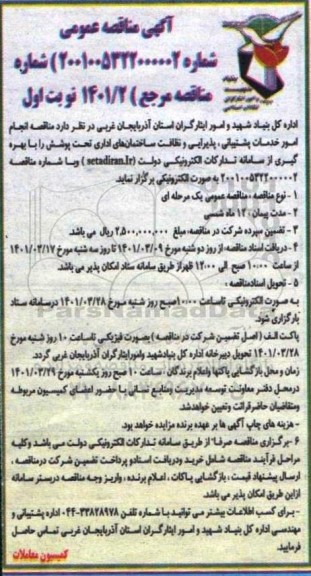 آگهی مناقصه عمومی
شماره ۲۰۰۱۰۰۵۳۲۲۰۰۰۰۰۲) شماره
مناقصه مرجع ) ۱۴۰۱/۲ نوبت اول
اداره کل بنیاد شهید و امور ایثارگران استان آذربایجان غربی در نظر دارد مناقصه انجام
امور خدمات پشتیبانی ، پذیرایی و نظافت ساختمان‌های اداری تحت پوشش را با بهره
گیری از سامانه تدارکات الکترونیکی دولت (setadiran.ir) وبا شماره مناقصه
۲۰۰۱۰۰۵۳۲۲۰۰۰۰۰۲ به صورت الکترونیکی برگزار نماید.
۱ - نوع مناقصه : مناقصه عمومی یک مرحله ای
۲ - مدت پیمان : ۱۲ ماه شمسی
۳ - تضمین سپرده شرکت در مناقصه: مبلغ ۲,۵۰۰,۰۰۰,۰۰۰ ریال می باشد.
۴ - دریافت اسناد مناقصه : از روز دو شنبه مورخ ۱۴۰۱/۰۳/۰۹ تا روز سه شنبه مورخ ۱۴۰۱/۰۳/۱۷
از ساعت ۱۰:۰۰ صبح الی ۱۲:۰۰ ظهر از طریق سامانه ستاد امکان پذیر می باشد.
۵ - تحویل اسناد مناقصه :
به صورت الکترونیکی تا ساعت ۱۰:۰۰ صبح روز شنبه مورخ ۱۴۰۱/۰۳/۲۸ در سامانه ستاد
بارگزاری شود.
پاکت الف ( اصل تضمین شرکت در مناقصه ) بصورت فیزیکی تا ساعت ۱۰ روز شنبه مورخ
۱۴۰۱/۰۳/۲۸ تحویل دبیرخانه اداره کل بنیاد شهید و امور ایثارگران آذربایجان غربی گردد.
زمان و محل بازگشایی پاکتها و اعلام برندگان : ساعت ۱۰ صبح روز یکشنبه مورخ ۱۴۰۱/۰۳/۲۹
در محل دفتر معاونت توسعه مدیریت و منابع انسانی با حضور اعضای کمیسیون مربوطه
و متقاضیان حاضر قرائت و تعیین خواهد شد.
- هزینه های چاپ آگهی ها بر عهده برنده مزایده خواهد بود.
۶ - برگزاری مناقصه صرفا" از طریق سامانه تدارکات الکترونیکی دولت می باشد و کلیه
مراحل فرآیند مناقصه شامل خرید و دریافت اسناد و پرداخت تضمین شرکت در مناقصه ،
ارسال پیشنهاد قیمت ، بازگشایی پاکات ، اعلام برنده ، واریز وجه مناقصه در بستر سامانه
از این طریق امکان پذیر می باشد.
- برای کسب اطلاعات بیشتر می توانید با شماره تلفن ۳۳۸۲۸۹۷۸-۰۴۴ اداره پشتیبانی و
مهندسی اداره کل بنیاد شهید و امور ایثارگران استان آذربایجان غربی تماس حاصل
فرمایید.
کمیسیون معاملات
ParsNamadData